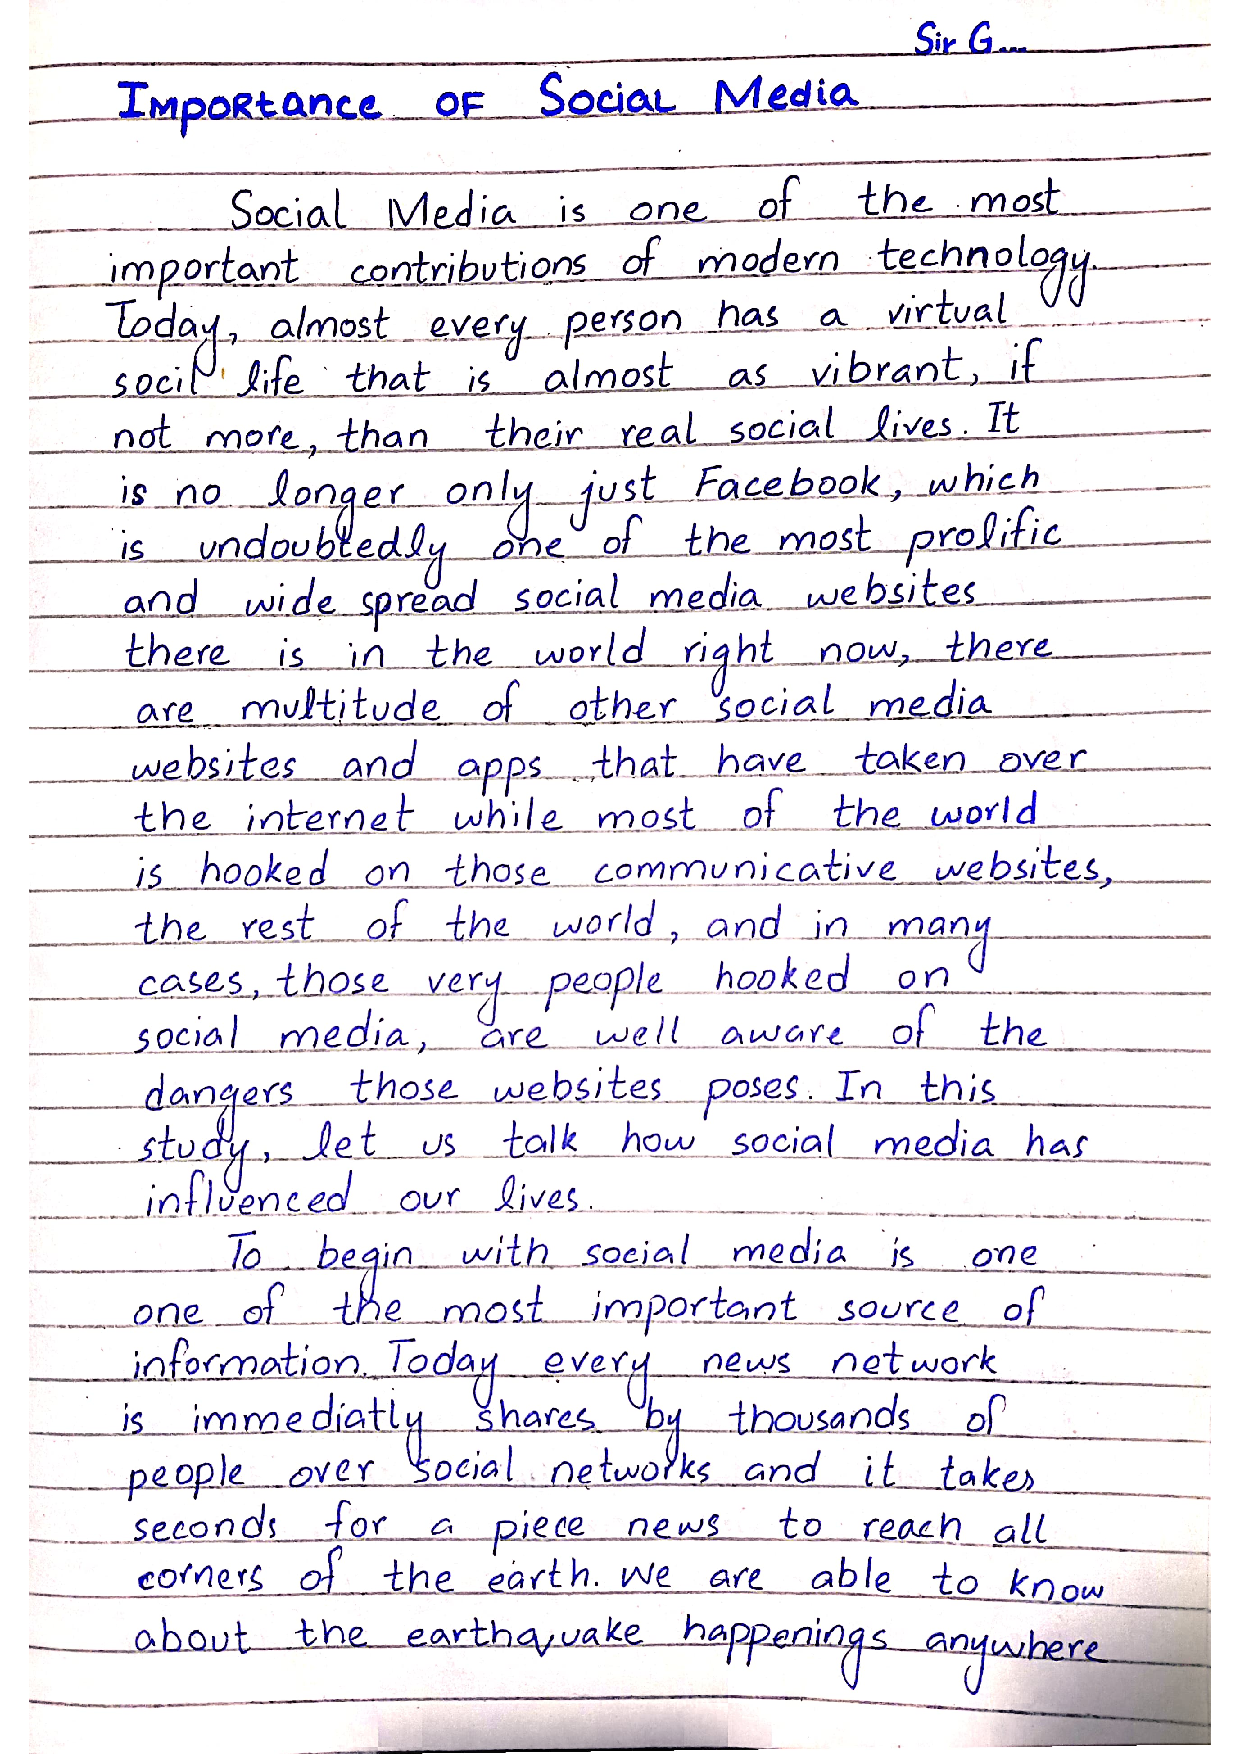 Sir G...
Importance of Social Media
Social Media is one of the most
important contributions of modern technology.
Today, almost every person has a virtual
socil life that is almost as vibrant, if
not more, than their real social lives. It
is no longer only just Facebook, which
is undoubtedly one of the most prolific
and wide spread social media websites
there is in the world right now, there
are multitude of other social media
websites and apps that have taken over
the internet while most of the world
is hooked on those communicative websites,
the rest of the world, and in many
cases, those very people hooked on
social media, are well aware of the
dangers those websites poses. In this
study, let us talk how social media has
influenced our lives.
To begin with social media is one
one of the most important source of
information. Today every news network
is immediatly shares by thousands of
people over social networks and it takes
seconds for a piece news to reach all
corners of the earth. We are able to know
about the earthquake happenings anywhere